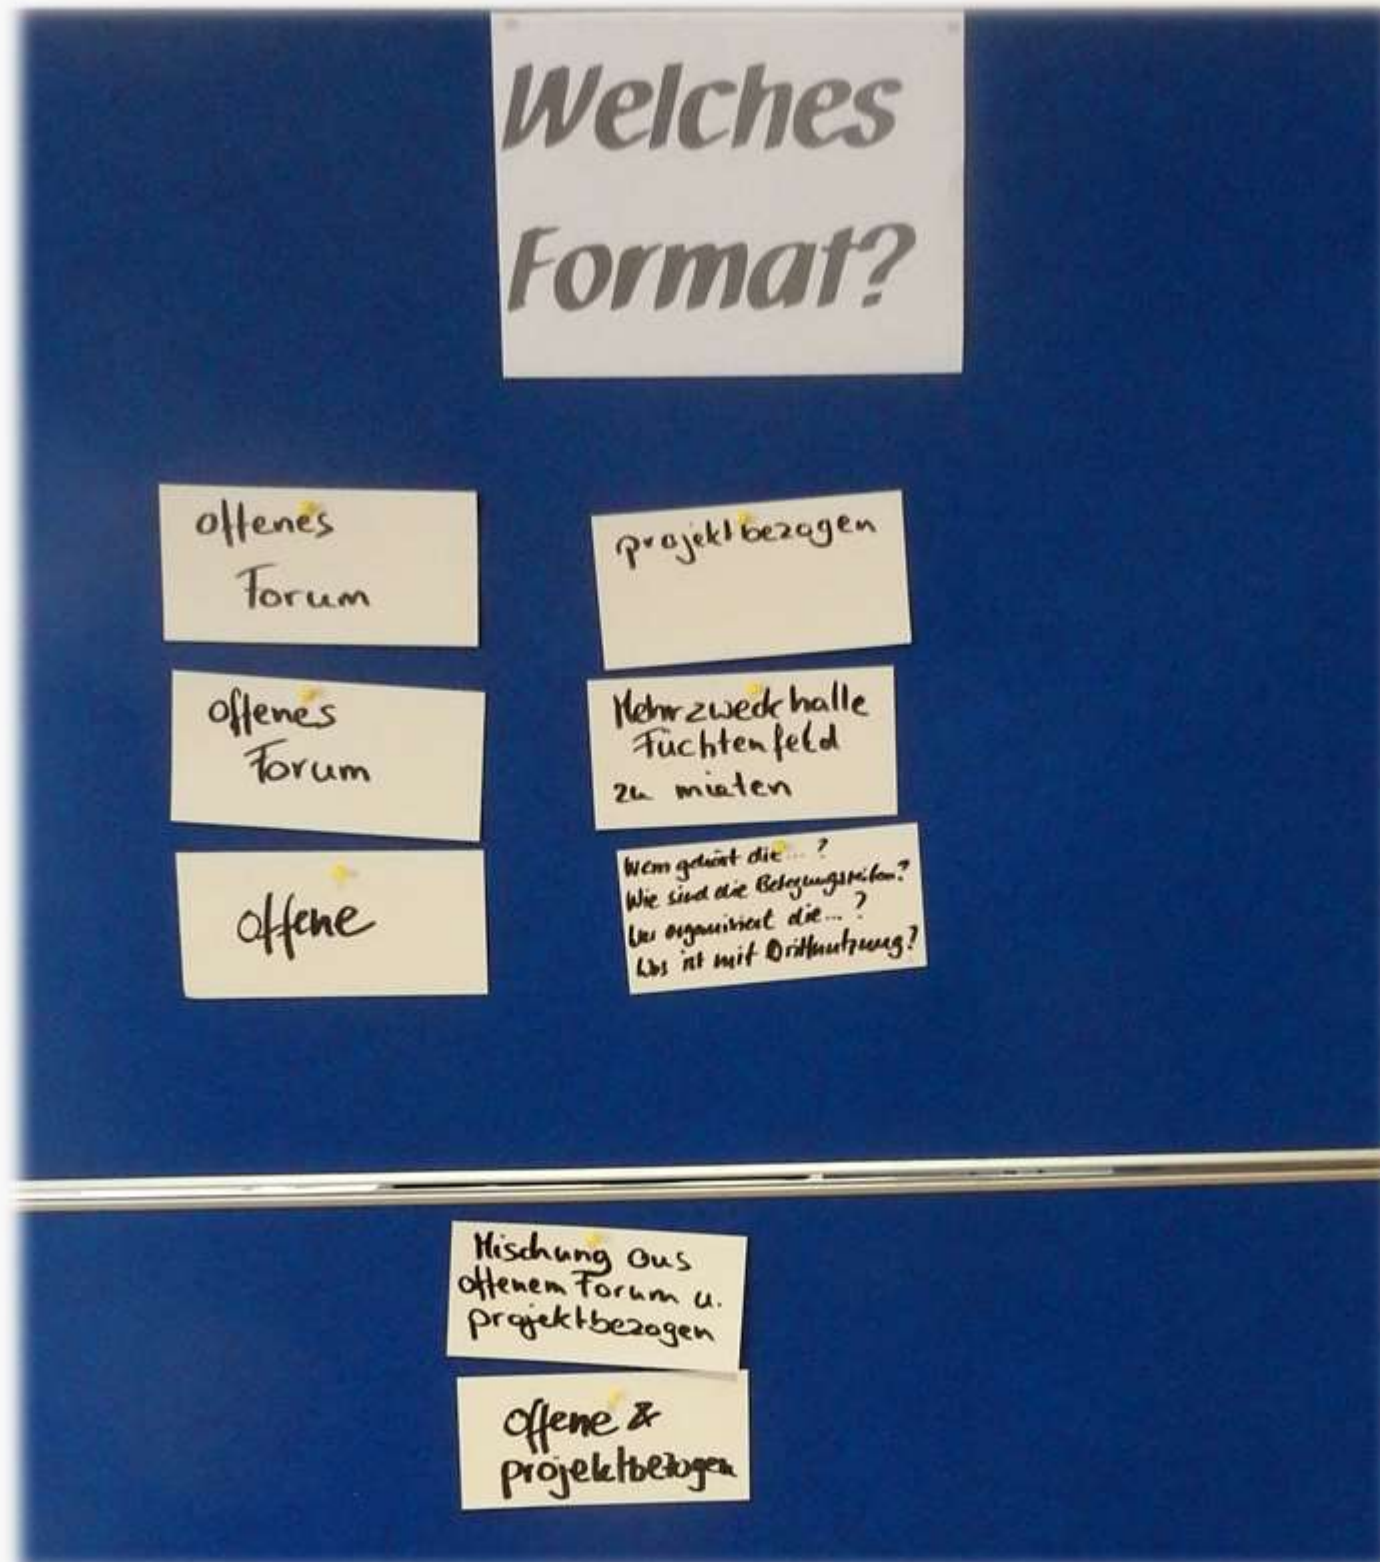 Welches
Format?
offenes
Forum
offenes
Forum
offene
projektbezogen
Mehrzweckhalle
Füchtenfeld
zu mieten
Wem gehört die ... ?
Wie sind die Belegungszeiten?
Wer organisiert die ... ?
Was ist mit Drittnutzung?
Mischung aus
offenem Forum u.
projektbezogen
offene &
projektbezogen